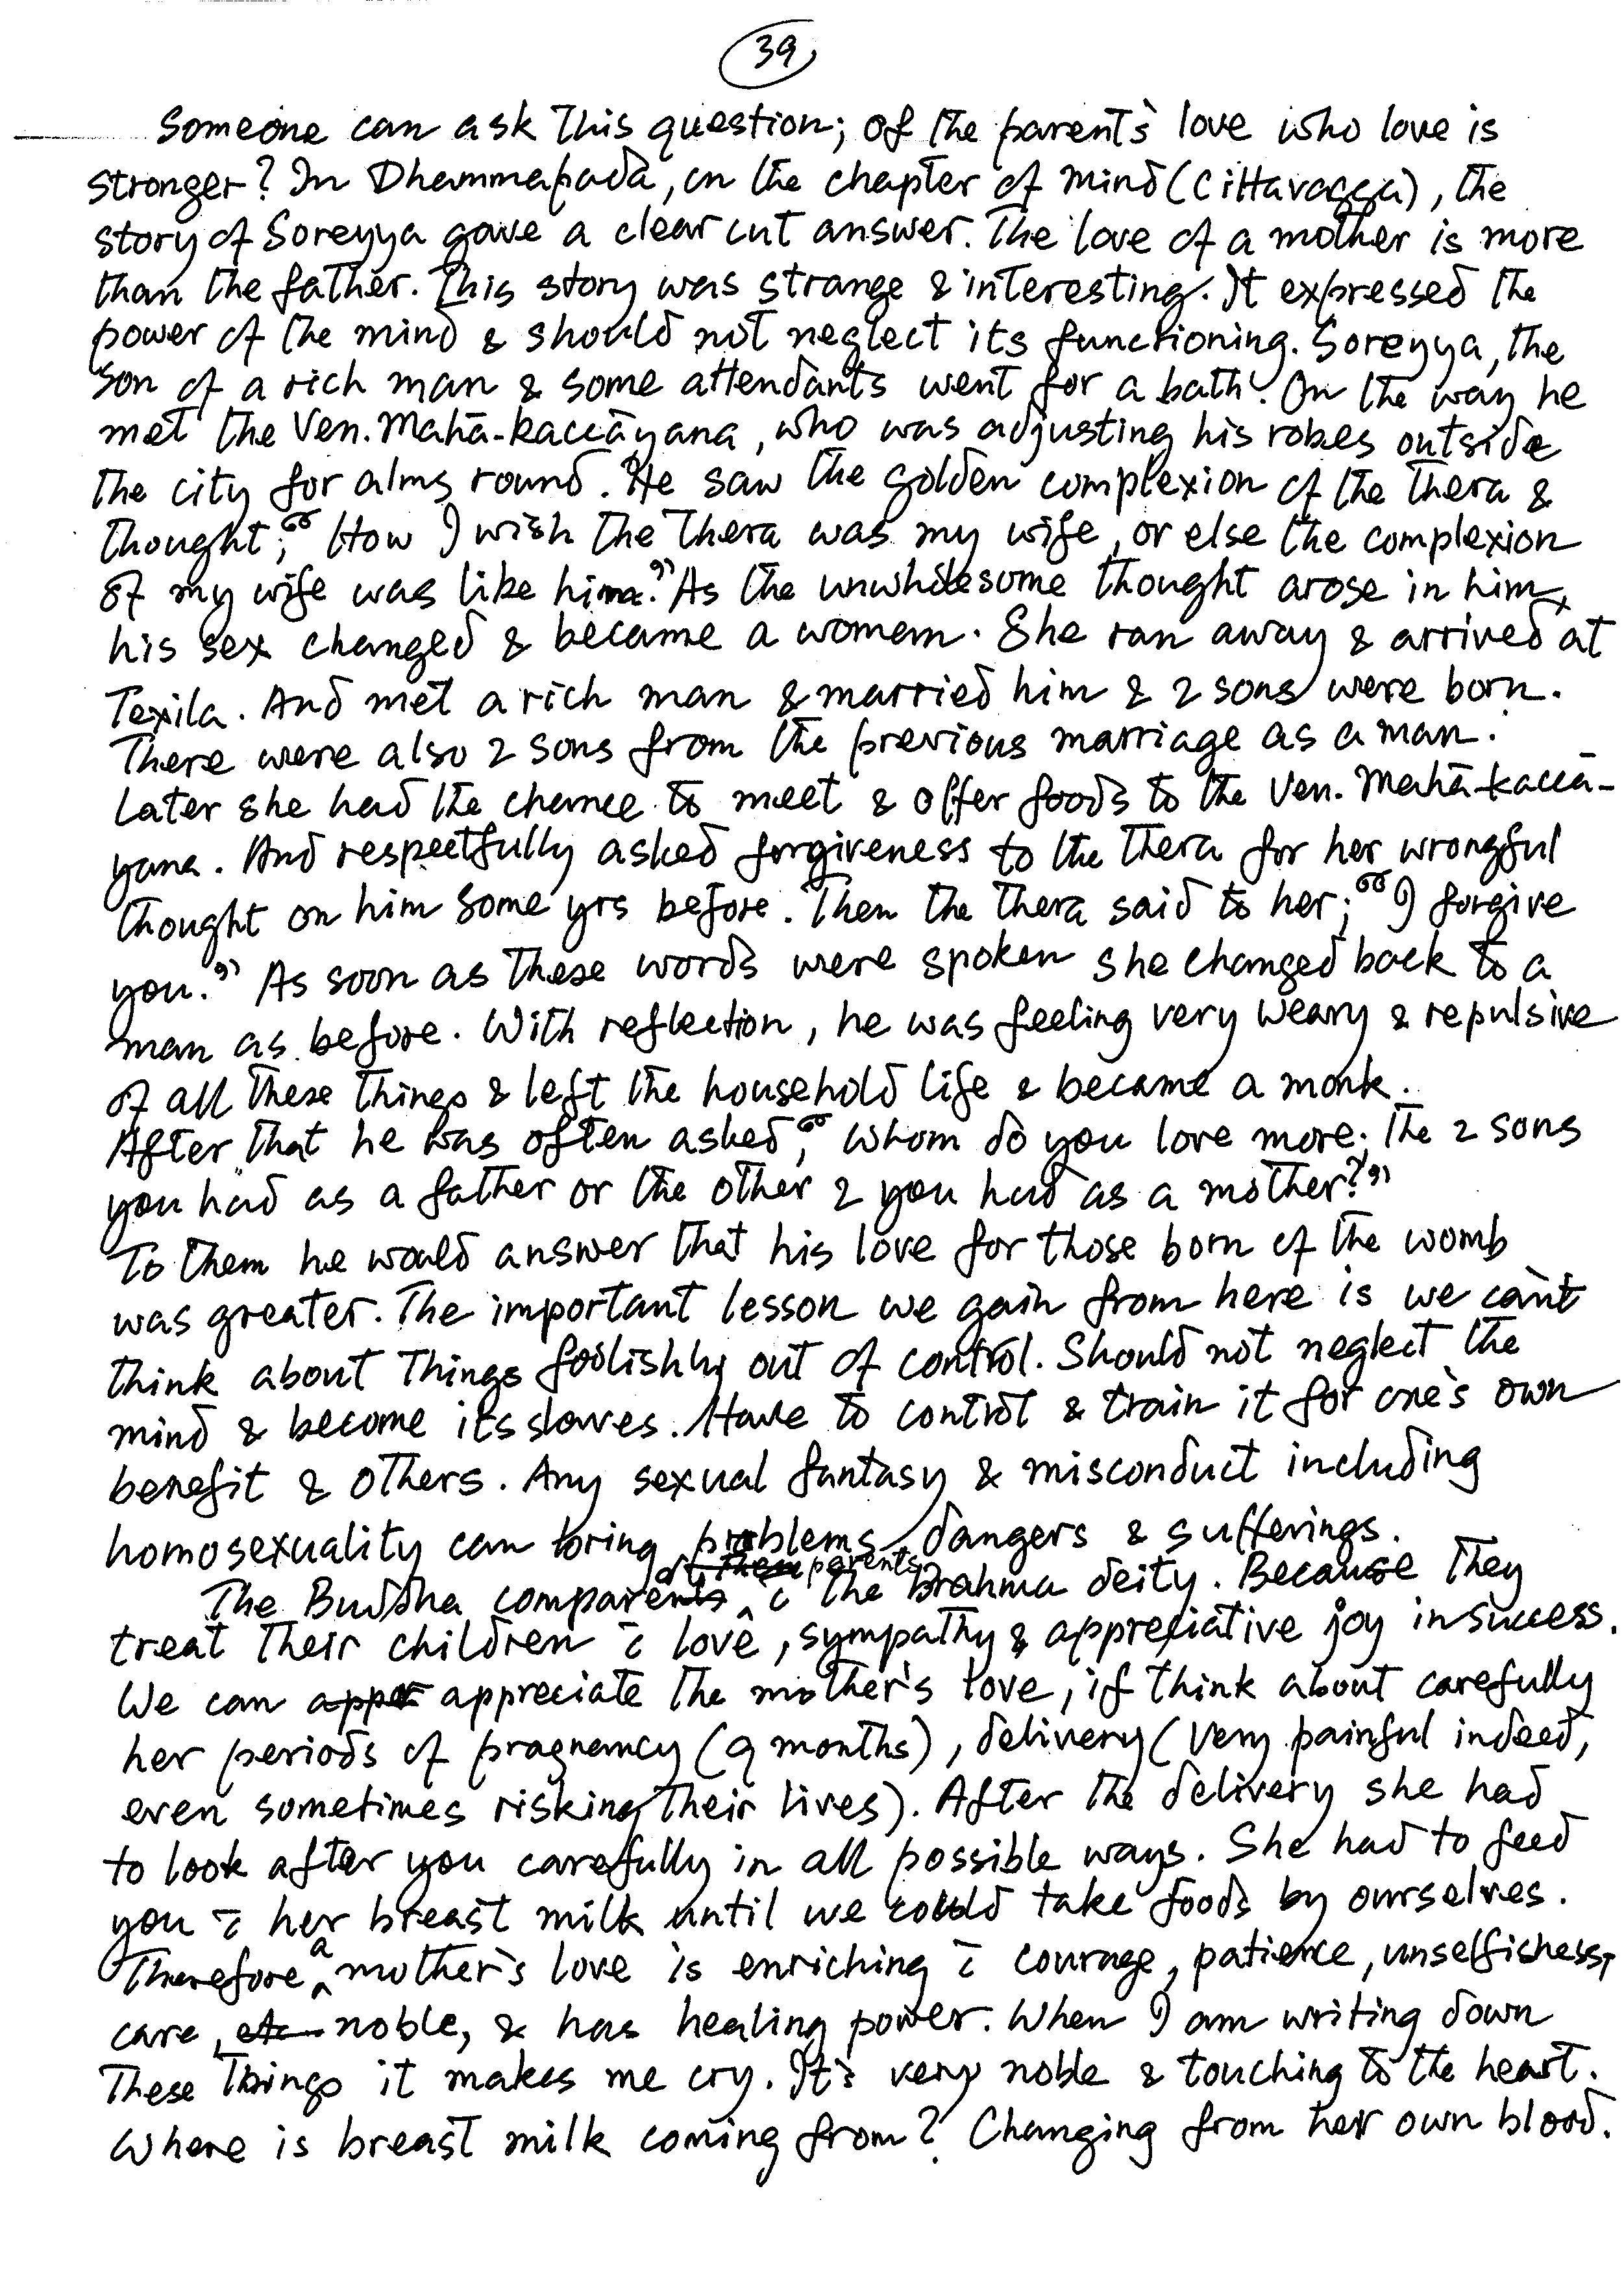 39
Someone can ask this question; of the parent's love who love is
stronger? In Dhammapada, in the chapter of mind (Cittavagga), the
story of Soreyya gave a clear cut answer. The love of a mother is more
than the father. This story was strange & interesting. It expressed the
power of the mind & should not neglect its functioning. Soreyya, the
son of a rich man & some attendants went for a bath. On the way he
met the Ven. Mahā-kaccāyana, who was adjusting his robes outside
the city for alms round. He saw the golden complexion of the Thera &
thought; “How I wish the Thera was my wife, or else the complexion
of my wife was like him.” As the unwholesome thought arose in him,
his sex changed & became a womem. She ran away & arrived at
Texila. And met a rich man & married him & 2 sons were born.
There were also 2 sons from the previous marriage as a man.
Later she had the chance to meet & offer foods to the Ven. Mahā-kaccā-
yana. And respectfully asked forgiveness to the Thera for her wrongful
thought on him some yrs before. Then the Thera said to her; “I forgive
you.” As soon as these words were spoken she changed back to a
man as before. With reflection, he was feeling very weary & repulsive
of all these things & left the household life & became a monk.
After that he was often asked, “Whom do you love more; the 2 sons
you had as a father or the other 2 you had as a mother?”
To them he would answer that his love for those born of the womb
was greater. The important lesson we gain from here is we can't
think about things foolishly out of control. Should not neglect the
mind & become its slaves. Have to control & train it for one's own
benefit & others. Any sexual fantasy & misconduct including
homosexuality can bring problems, dangers & sufferings.
The Buddha compared parents c̄ the brahma deity. Because they
treat their children c̄ love, sympathy & appreciative joy in success.
We can appreciate the mother's love, if think about carefully
her periods of pragnemcy (9 months), delivery (very painful indeed,
even sometimes risking their lives). After the delivery she had
to look after you carefully in all possible ways. She had to feed
you c̄ her breast milk until we could take foods by ourselves.
Therefore a mother's love is enriching c̄ courage, patience, unselfishess,
care, noble, & has healing power. When I am writing down
these things it makes me cry. It's very noble & touching to the heart.
Where is breast milk coming from? Changing from her own blood.